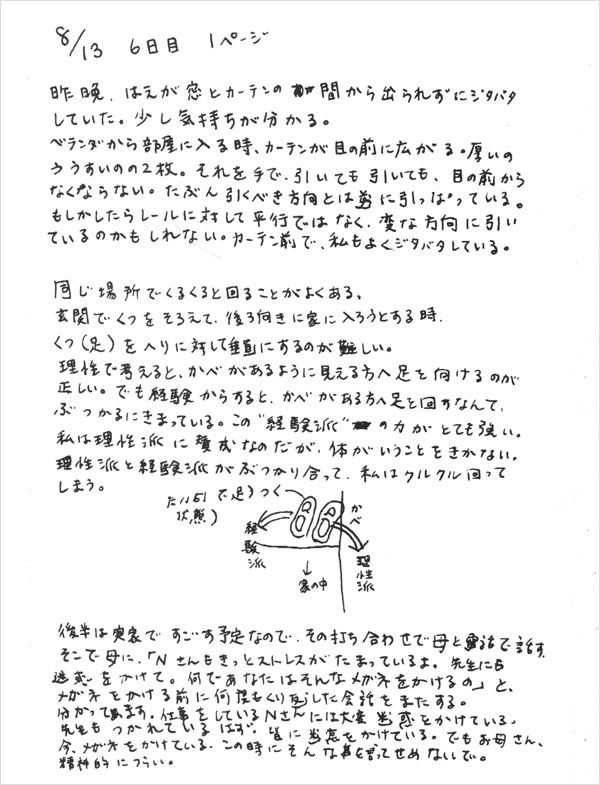 8/13 6日目 1ページ
昨晩、はえが窓とカーテンの間から出られずにジタバタ
していた。少し気持ちが分かる。
ベランダから部屋に入る時、カーテンが目の前に広がる。厚いの
とうすいのの2枚。それを手で、引いても引いても、目の前から
なくならない。たぶん引くべき方向とは逆に引っぱっている。
もしかしたらレールに対して平行ではなく、変な方向に引い
ているのかもしれない。カーテン前で、私もよくジタバタしている。
同じ場所でくるくると回ることがよくある。
玄関でくつをそろえて、後ろ向きに家に入ろうとする時、
くつ(足)を入りに対して垂直にするのが難しい。
理性で考えると、かべがあるように見える方へ足を向けるのが
正しい。でも経験からすると、かべがある方へ足を回すなんて、
ぶつかるにきまっている。この"経験派"の力がとても強い。
私は理性派に賛成なのだが、体がいうことをきかない。
理性派と経験派がぶつかり合って、私はクルクル回って
しまう。
で足)つく
状態)
かべ
経験派
理性派
家の中
後半は実家ですごす予定なので、その打ち合わせで母と電話で話す。
そこで母に、「Nさんもきっとストレスがたまっているよ。先生にも
迷惑をかけて。何であなたはそんなメガネをかけるの」と、
メガネをかける前に何度もくり返した会話をまたする。
分かってます。仕事をしているNさんには大変迷惑をかけている、
先生もつかれているはず。皆に迷惑をかけている。でもお母さん、
今、メガネをかけている、この時にそんな事を言ってせめないで。
精神的につらい。